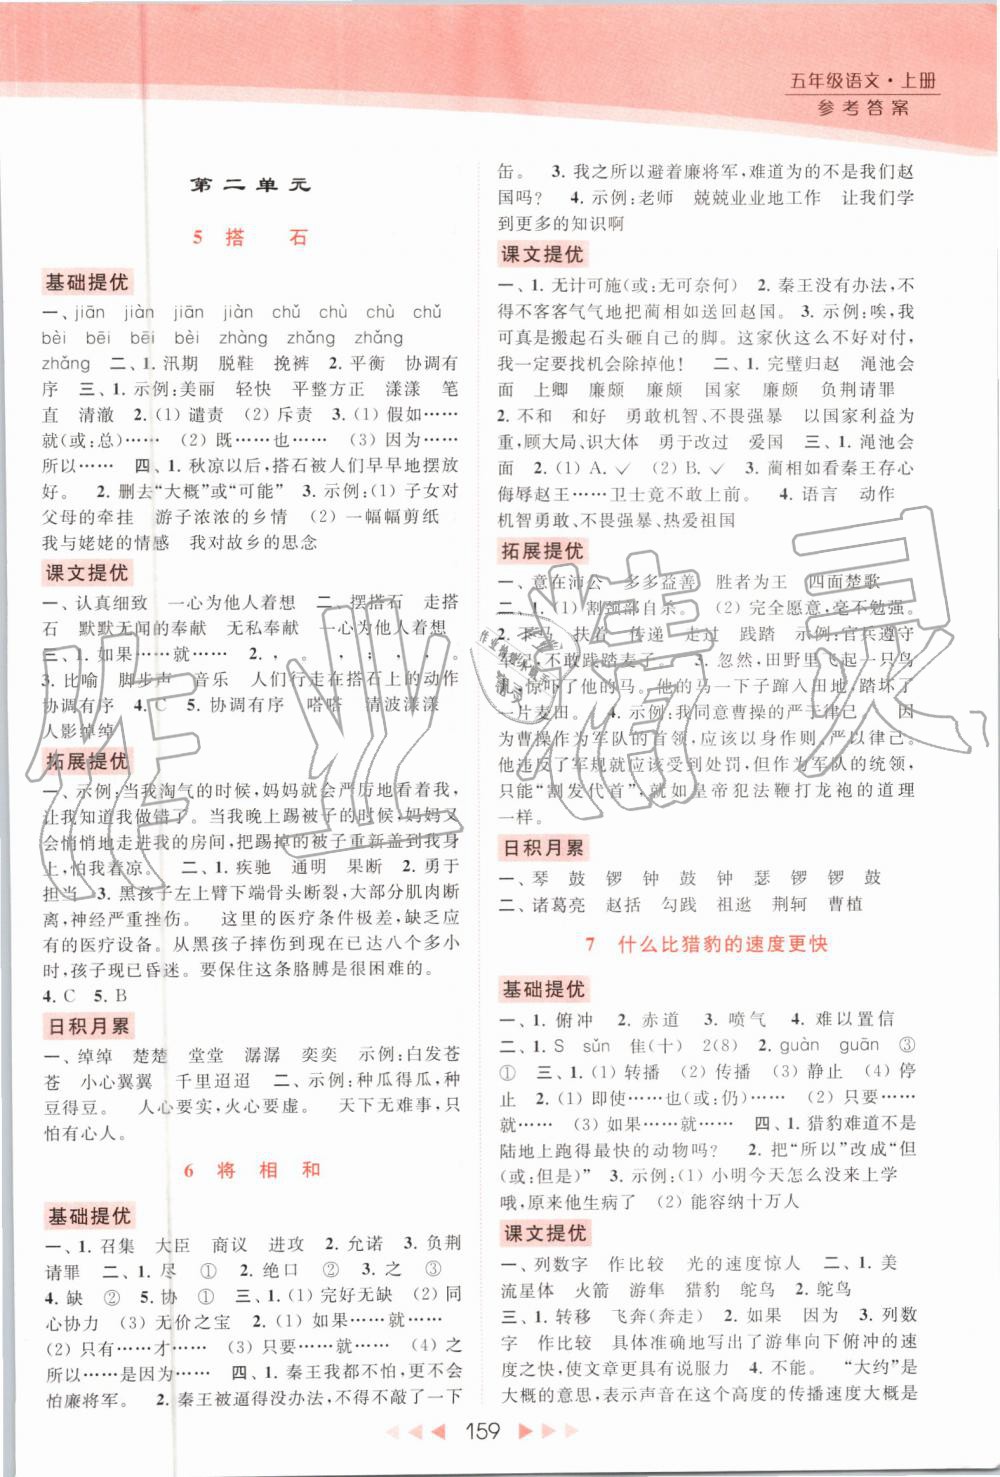 五年级语文·上册
参考答案
第二单元
5 搭 石
基础提优
一、jiān jiàn jiān jiàn chǔ chù chù chǔ
bèi bēi bēi bèi zhàng zhǎng zhǎng
zhǎng 二、1. 汛期 脱鞋 挽裤 2. 平衡 协调有
序 三、1. 示例:美丽 轻快 平整方正 漾漾 笔
直 清澈 2. (1) 谴责 (2) 斥责 3. (1) 假如……
就(或:总)…… (2) 既……也…… (3) 因为……
所以…… 四、1. 秋凉以后,搭石被人们早早地摆放
好。 2. 删去“大概”或“可能” 3. 示例:(1) 子女对
父母的牵挂 游子浓浓的乡情 (2) 一幅幅剪纸
我与姥姥的情感 我对故乡的思念
课文提优
一、认真细致 一心为他人着想 二、摆搭石 走搭
石 默默无闻的奉献 无私奉献 一心为他人着想
三、1. 如果……就…… 2. , 。 , ; , , 。
3. 比喻 脚步声 音乐 人们行走在搭石上的动作
协调有序 4. C 5. 协调有序 嗒嗒 清波漾漾
人影绰绰
拓展提优
一、示例:当我淘气的时候,妈妈就会严厉地看着我,
让我知道我做错了。当我晚上踢被子的时候,妈妈又
会悄悄地走进我的房间,把踢掉的被子重新盖到我身上,
怕我着凉。 二、1. 疾驰 通明 果断 2. 勇于
担当 3. 黑孩子左上臂下端骨头断裂,大部分肌肉断
离,神经严重挫伤。 这里的医疗条件极差,缺乏应
有的医疗设备。从黑孩子摔伤到现在已达八个多小
时,孩子现已昏迷。要保住这条胳膊是很困难的。
4. C 5. B
日积月累
一、绰绰 楚楚 堂堂 潺潺 奕奕 示例:白发苍
苍 小心翼翼 千里迢迢 二、示例:种瓜得瓜,种
豆得豆。 人心要实,火心要虚。 天下无难事,只
怕有心人。
6 将 相 和
基础提优
一、1. 召集 大臣 商议 进攻 2. 允诺 3. 负荆
请罪 二、1. 尽 ① 2. 绝口 ② 3. 之 ③
4. 缺 ② 5. 协 ① 三、1. (1) 完好无缺 (2) 同
心协力 (3) 无价之宝 2. (1) 如果……就……
(2) 只有……才…… (3) 只要……就…… (4) 之
所以……是因为…… 四、1. 秦王我都不怕,更不会
怕廉将军。 2. 秦王被逼得没办法,不得不敲了一下
缶。 3. 我之所以避着廉将军,难道为的不是我们赵
国吗? 4. 示例:老师 兢兢业业地工作 让我们学
到更多的知识啊
课文提优
一、1. 无计可施(或:无可奈何) 2. 秦王没有办法,不
得不客客气气地把蔺相如送回赵国。 3. 示例:唉,我
可真是搬起石头砸自己的脚。这家伙这么不好对付,
我一定要找机会除掉他! 二、1. 完璧归赵 渑池会
面 上卿 廉颇 廉颇 国家 廉颇 负荆请罪
2. 不和 和好 勇敢机智、不畏强暴 以国家利益为
重,顾大局、识大体 勇于改过 爱国 三、1. 渑池会
面 2. (1) A. ✓ (2) B. ✓ 3. 蔺相如看秦王存心
侮辱赵王……卫士竟不敢上前。 4. 语言 动作
机智勇敢、不畏强暴、热爱祖国
拓展提优
一、意在沛公 多多益善 胜者为王 四面楚歌
二、1. (1) 割颈部自杀。 (2) 完全愿意,毫不勉强。
2. 下马 扶着 传递 走过 践踏 示例:官兵遵守
军纪,不敢践踏麦子。 3. 忽然,田野里飞起一只鸟
儿,惊吓了他的马。他的马一下子蹿入田地,踏坏了
一片麦田。 4. 示例:我同意曹操的严于律己。 因
为曹操作为军队的首领,应该以身作则、严于律己。
他违反了军规就应该受到处罚,但作为军队的统领,
只能“割发代首”,就如皇帝犯法鞭打龙袍的道理
一样。
日积月累
一、琴 鼓 锣 钟 鼓 钟 瑟 锣 锣 鼓
二、诸葛亮 赵括 勾践 祖逖 荆轲 曹植
7 什么比猎豹的速度更快
基础提优
一、1. 俯冲 2. 赤道 3. 喷气 4. 难以置信
二、1. S sǔn 隹(十) 2(8) 2. guàn guān ③
① 三、1. (1) 转播 (2) 传播 (3) 静止 (4) 停
止 2. (1) 即使……也(或:仍)…… (2) 只要……
就…… (3) 如果……就…… 四、1. 猎豹难道不是
陆地上跑得最快的动物吗? 2. 把“所以”改成“但
(或:但是)” 3. 示例:(1) 小明今天怎么没来上学
哦,原来他生病了 (2) 能容纳十万人
课文提优
一、列数字 作比较 光的速度惊人 二、1. 美
流星体 火箭 游隼 猎豹 鸵鸟 2. 鸵鸟
三、1. 转移 飞奔(奔走) 2. 如果 因为 3. 列数
字 作比较 具体准确地写出了游隼向下俯冲的速
度之快,使文章更具有说服力 4. 不能。 “大约”是
大概的意思,表示声音在这个高度的传播速度大概是
159